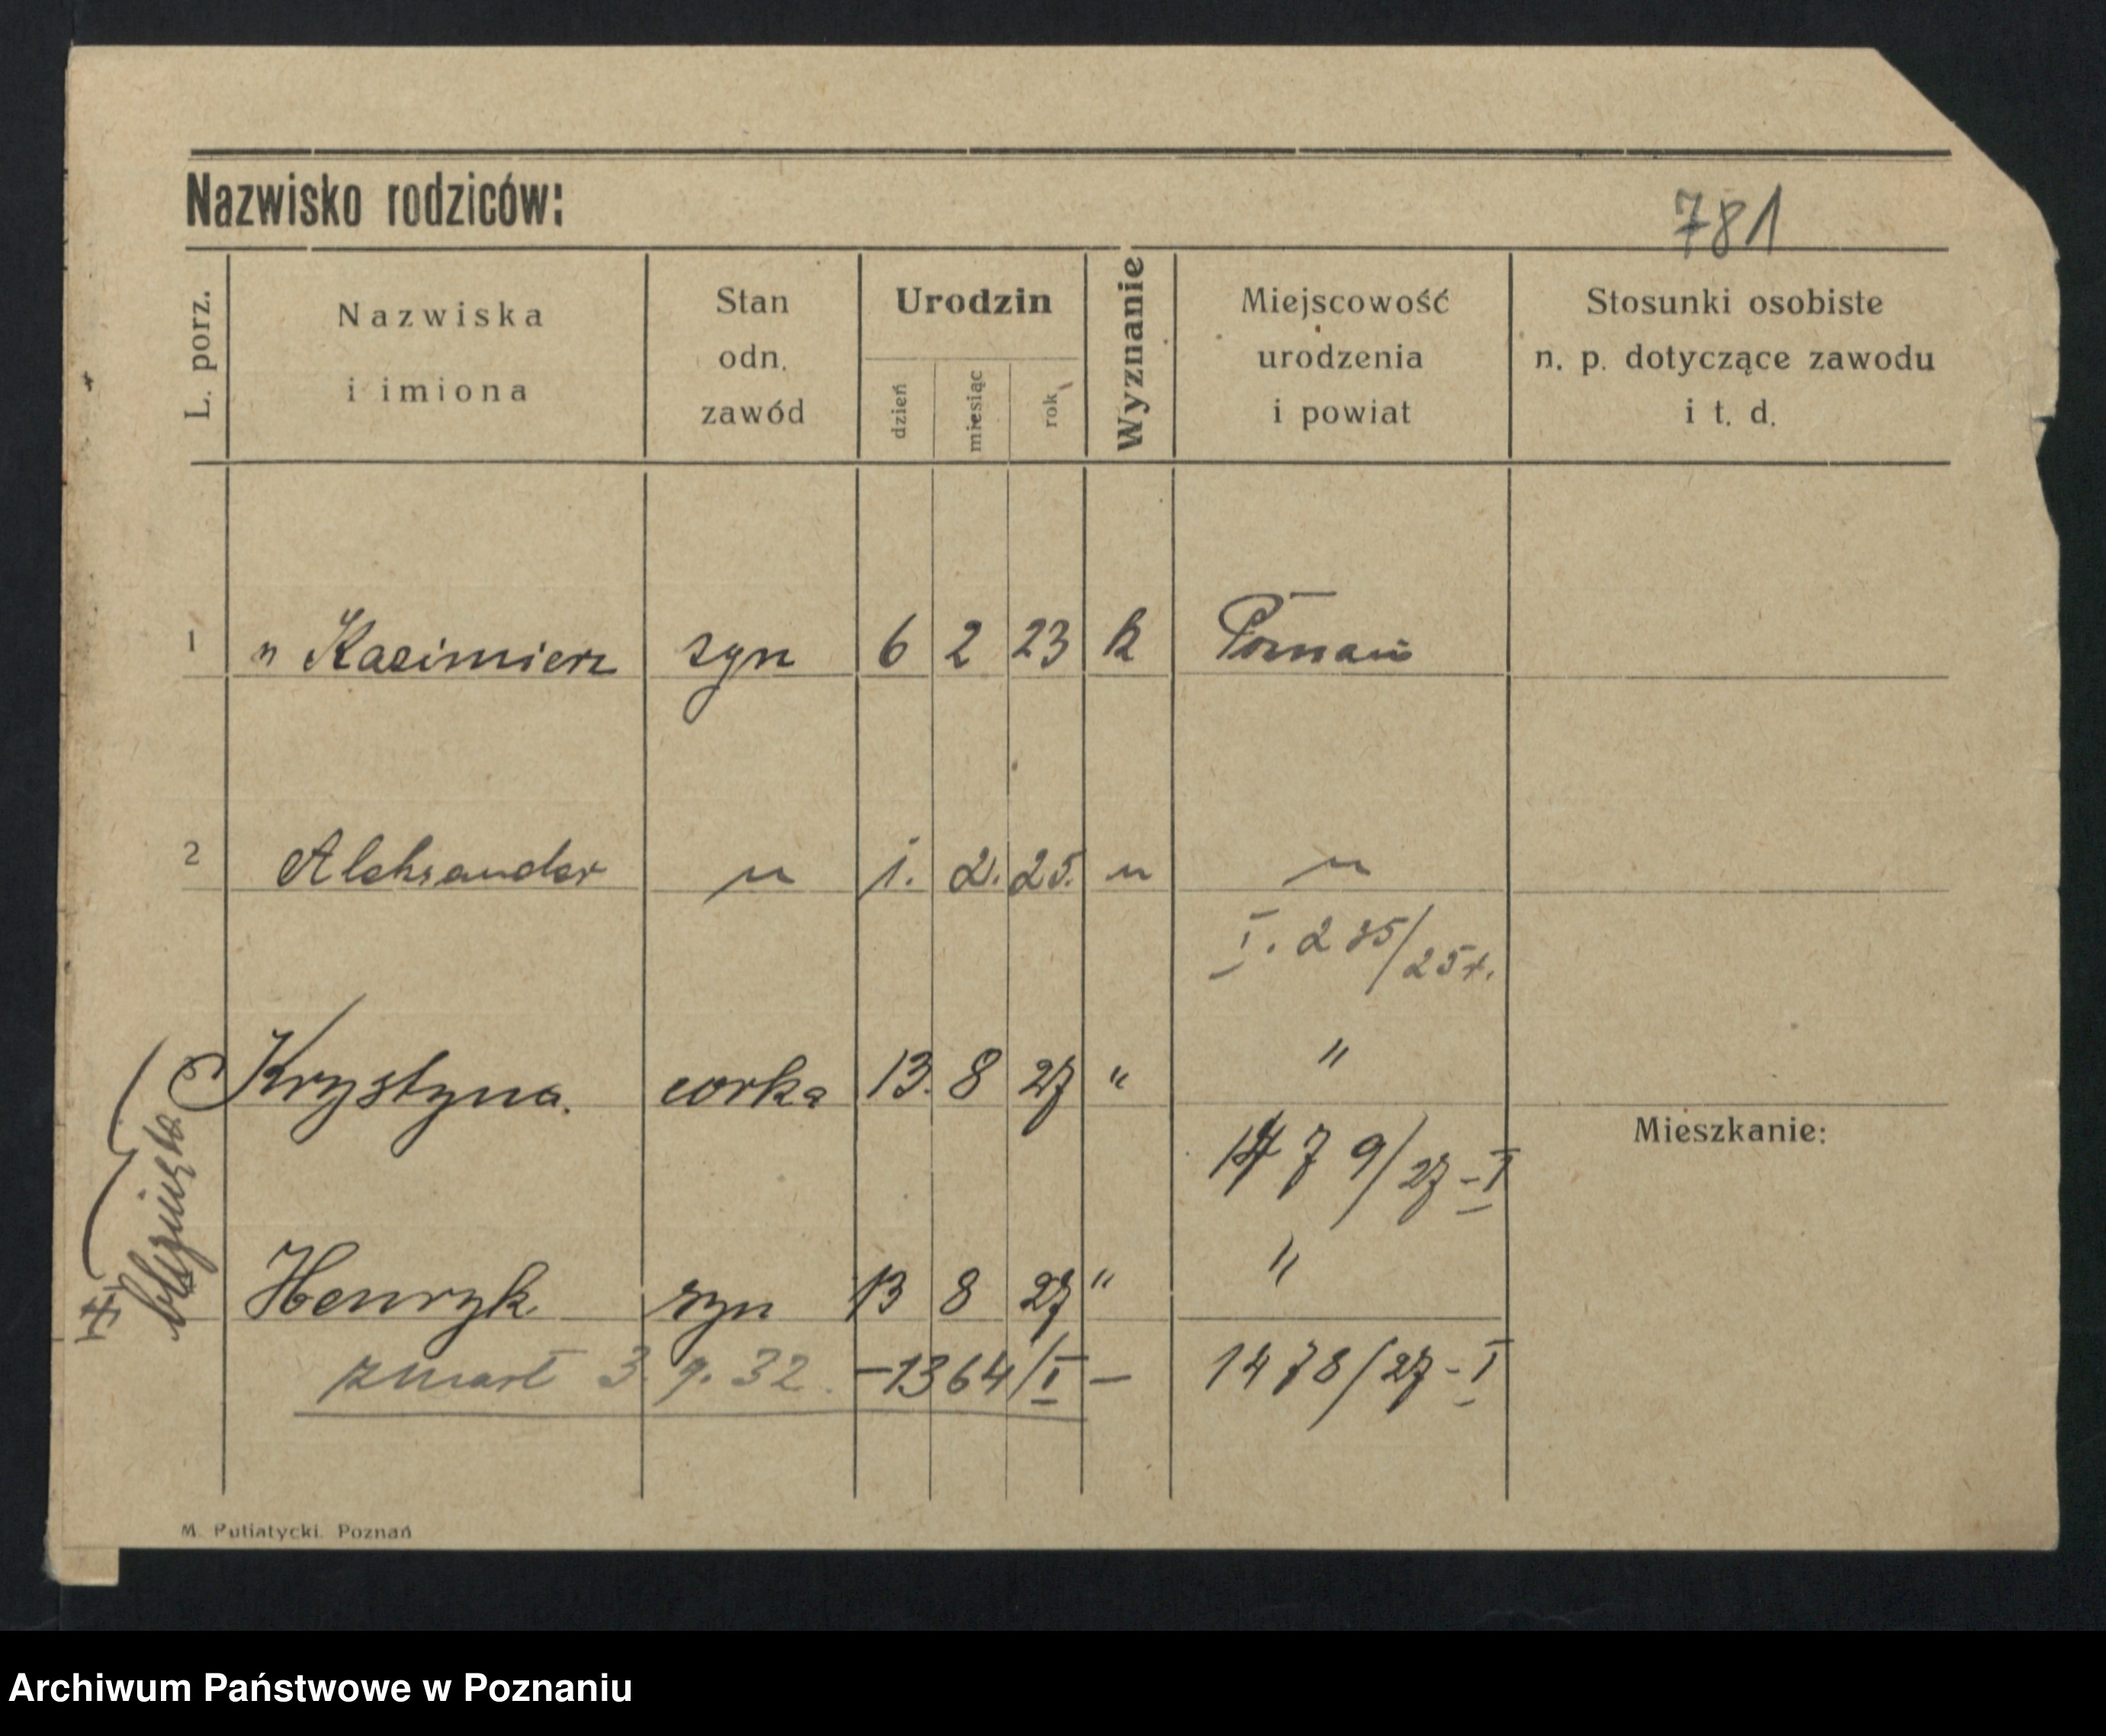 Nazwisko rodziców:
781
L. porz.
Nazwiska
i imiona
Stan
odn.
zawód
Urodzin
dzień
miesiąc
rok
Wyznanie
Miejscowość
urodzenia
i powiat
Stosunki osobiste
n. p. dotyczące zawodu
i t. d.
1 " Kazimierz syn 6 2 23 k Poznań
2 Aleksander " 1. 2. 25. " "
I. 235/25r.
Krystyna. corka 13. 8 27 " "
1479/27-I
Mieszkanie:
bliźnięta
Henryk. syn 13 8 27 " "
zmarł 3.9.32. -1364/I- 1478/27-I
M. Putiatycki. Poznań
Archiwum Państwowe w Poznaniu